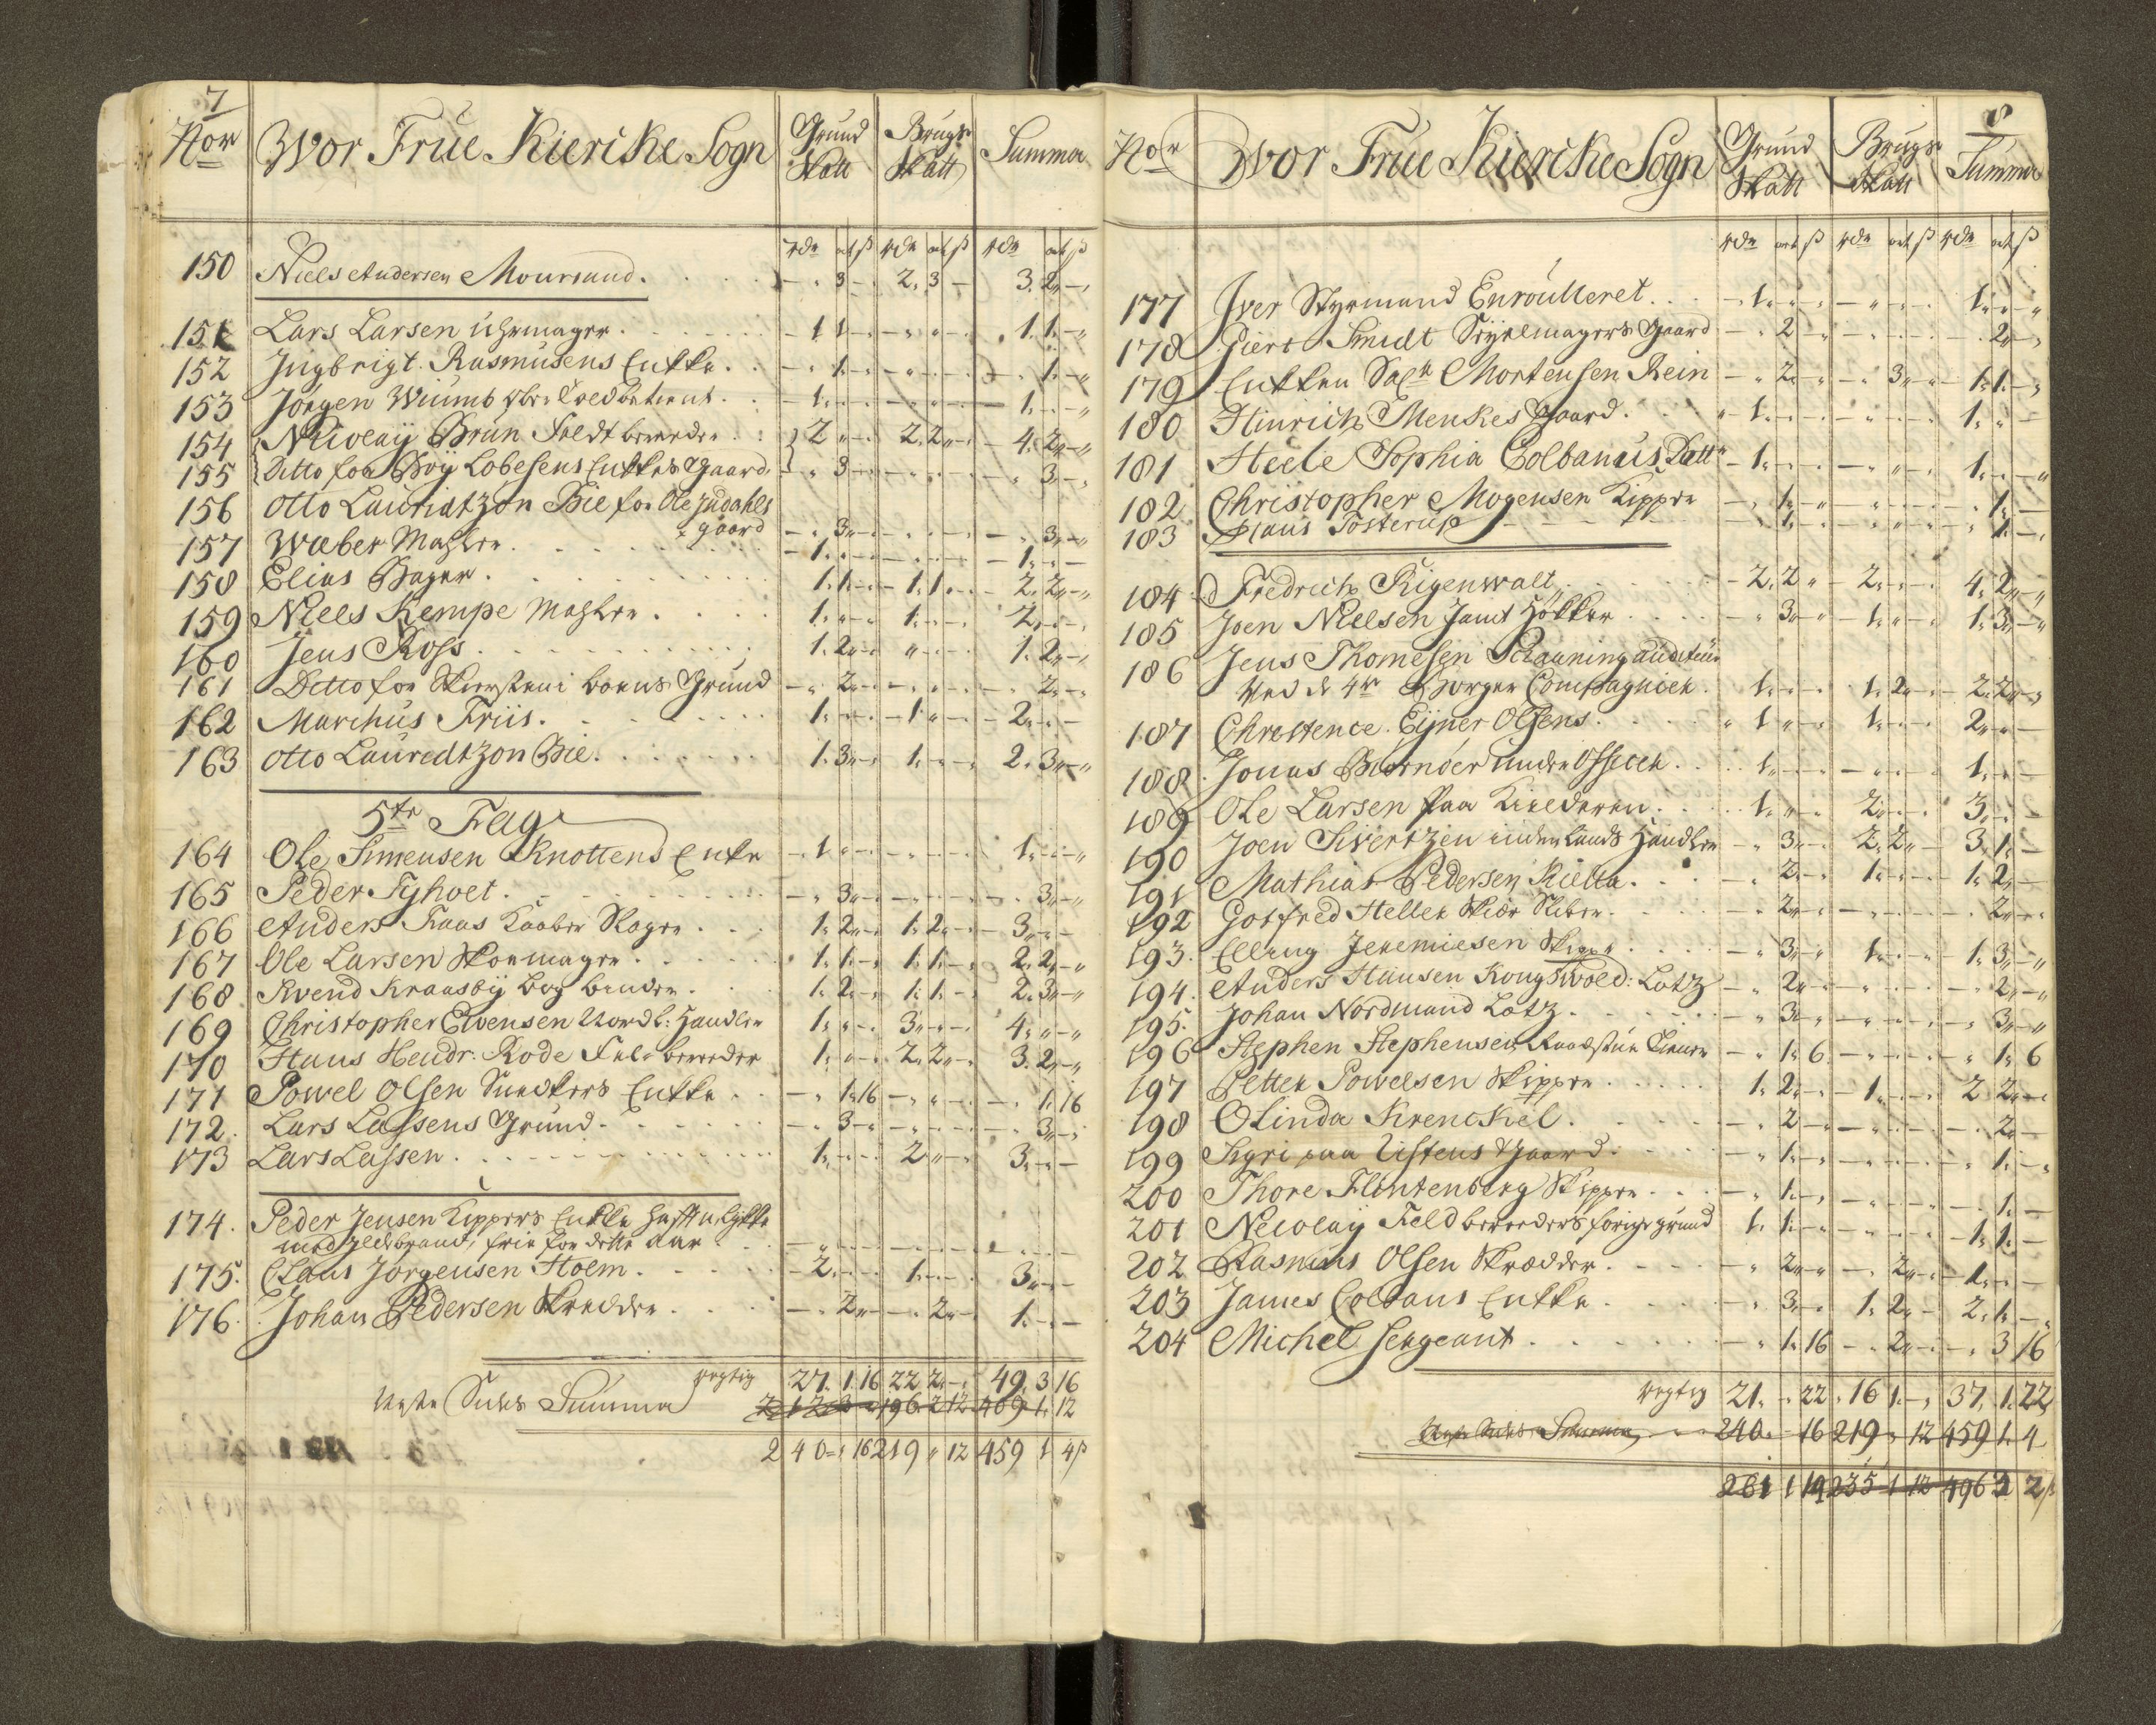 7
Nor Wor Frue Kiercke Sogn Grund Skatt Brugs Skatt Summa
rdr ort ß rdr ort ß rdr ort ß
150 Niels Andersen Moursund. - „ 3 - 2. 3 - 3. 2 „ -
151 Lars Larsen Uhrmager. - 1 1 - - „ - 1. 1. - „
152 Ingbrigt Rasmusens Enkke. - „ 1. - - „ - - 1. - „
153 Jörgen Wiümb - 1. - - - 1. - „
154 Nicolaÿ Brun Feldtbereder 2 „ - 2. 2 „ - 4. 2 „ -
155 Ditto for Boÿ Lobesens Enkkes Gaard - „ 3 - - - 3 - „
156 Otto Lauridtzon Bie for Ole Judahls
gaard - „ 3 „ - - - 3 „ -
157 Weber Mahler. - 1. - - - 1. - -
158 Elias Hagen. 1. 1. - 1. 1. - 2. 2 „ -
159 Niels Kempe Mahler. 1. „ - 1. - - 2. - -
160 Jens Ross. 1. 2 „ - „ - - 1. 2 „ -
161 Ditto for boens Grund - „ 2. - - - 2. -
162 Marchus Friis. 1. - - 1 „ - 2. - -
163 Otto Lauredtzon Bie. 1. 3 „ - 1. - - 2. 3 „ - „
5te Fag
164 Ole Simensen Knottens Enke - 1 „ - - - 1. - „
165 Peder Fyhoet. - „ 3 „ - - - 3 „ - „
166 Anders Kaaber Slager 1. 2 „ - 1. 2 „ - 3. - -
167 Ole Larsen Skomager. 1. 1. - 1. 1. - 2. 2 „ -
168 Svend Kraasbÿ Bog Binder. 1. 2. - 1. 1. - 2. 3 „ - „
169 Christopher Elvensen Nordl: Handler 1. „ - 3 „ - - 4. „ - „
170 Hans Hendr: Rode Fel-bereder 1. „ - 2. 2 „ - 3. 2 „ - „
171 Powel Olsen Snedkers Enkke. - „ 1. 16 - - - „ 1. 16
172. Lars Lassens Grund. - „ 3 - - - - „ 3 „ -
173 Lars Lassen. 1. - - 2 „ - 3. - -
174. Peder Jensen Kippers Enkke
med Ildebrand, frie for dette aar - - -
175. Claus Jörgensen Holm. - 2. - - 1. - - 3 „ - -
176. Johan Pedersen Skredder. - „ 2 „ - - 2 „ - 1. - -
27. 1. 16 22. 2. - 49. 3 16
Summa 212 3 196. 2 12 409 1. 12
2 4 0 - „ 16 219 „ 12 459 1 4 ß
8
Nor Wor Frue Kiercke Sogn Grund Skatt Brugs Skatt Summa
rdr ort ß rdr ort ß rdr ort ß
177 Iver Styrmand Enroulleret. - 1. „ - - - 1. „ - „
178 Giert Smidt Seyelmagers Gaard - „ 2 - - - 2 „ -
179 Enkken Sal: Mortensen Rein - „ 2. „ - 3 „ - 1. 1. - „
180 Hinrich Menkes Gaard. - 1. - - - 1. „ -
181 Heele Sophia Colbanus Datt: - 1. - - - 1. - - „
182 Christopher Mogensen Kipper - „ 1. - - - „ 1. -
183 Claus Tosterup - „ 1. - - - „ 1. -
184 Fredrich Rigenwalt - 2. 2 „ - 2. - - 4. 2 „ - „
185 Joen Nielsen Jamt Hökker. - „ 3 „ - 1. „ - 1. 3 „ - „
186 Jens Thomesen auditeur
ved de 4re Borger Compagnier. 1. - - 1. 2 „ - 2. 2 „ -
187 Chrestence Eijner Olsens. „ 1 „ - 1. - - 2 „ „ -
188. Jonas Biörnöer under Officer. 1. - - - - 1. - -
189 Ole Larsen Paa Kielderen. 1. „ - 2. - - 3. - -
190 Joen Sivertzen indenlands Handler - „ 3 „ - 2. 2 „ - 3. 1. -
191 Mathias Pedersen Kiella. - „ 2. - 1. - - 1. 2 „ -
192 Gotfred Heller - „ 2 „ - - - 2 „ - -
193. Elling Jeremiesen - „ 3 „ - 1. - - 1. 3 „ - „
194. Anders Hansen Kongswold: Lotz - „ 2 „ - - - 2 „ - „
195. Johan Nordmand Lotz. - „ 3 - - - „ 3 „ - „
196 Stephen Stephensen Raadstue Tiener - „ 1. 6. - - - „ 1. 6
197 Petter Powelsen Skipper. 1. 2 „ - - 1. - - 2 2 „ -
198 Olinda Krenckel. - „ 2 - - - 2. -
199 Sigri paa Listens Gaard. - „ 1. - - - „ 1. - „
200 Thore Flintenberg Skipper. - „ 1. - - - 1. -
201 Nicolaÿ Feldbereders forige grund 1. 1. - - - - 1. 1. -
202 Rasmus Olsen Skrædder. - „ 2 „ - 2 „ - 1. - -
203 James Colbans Enkke. - „ 3. - 1. 2. - 2. 1. -
204 Michel Sergeant. - „ 1. 16 - „ 2 „ - „ 3 16
21. - 22. 16 1. - 37. 1. 22
Summa 240. - 16 219 „ 12 459 1. 4
261 1 19 235 1 12 496 2 2 ß